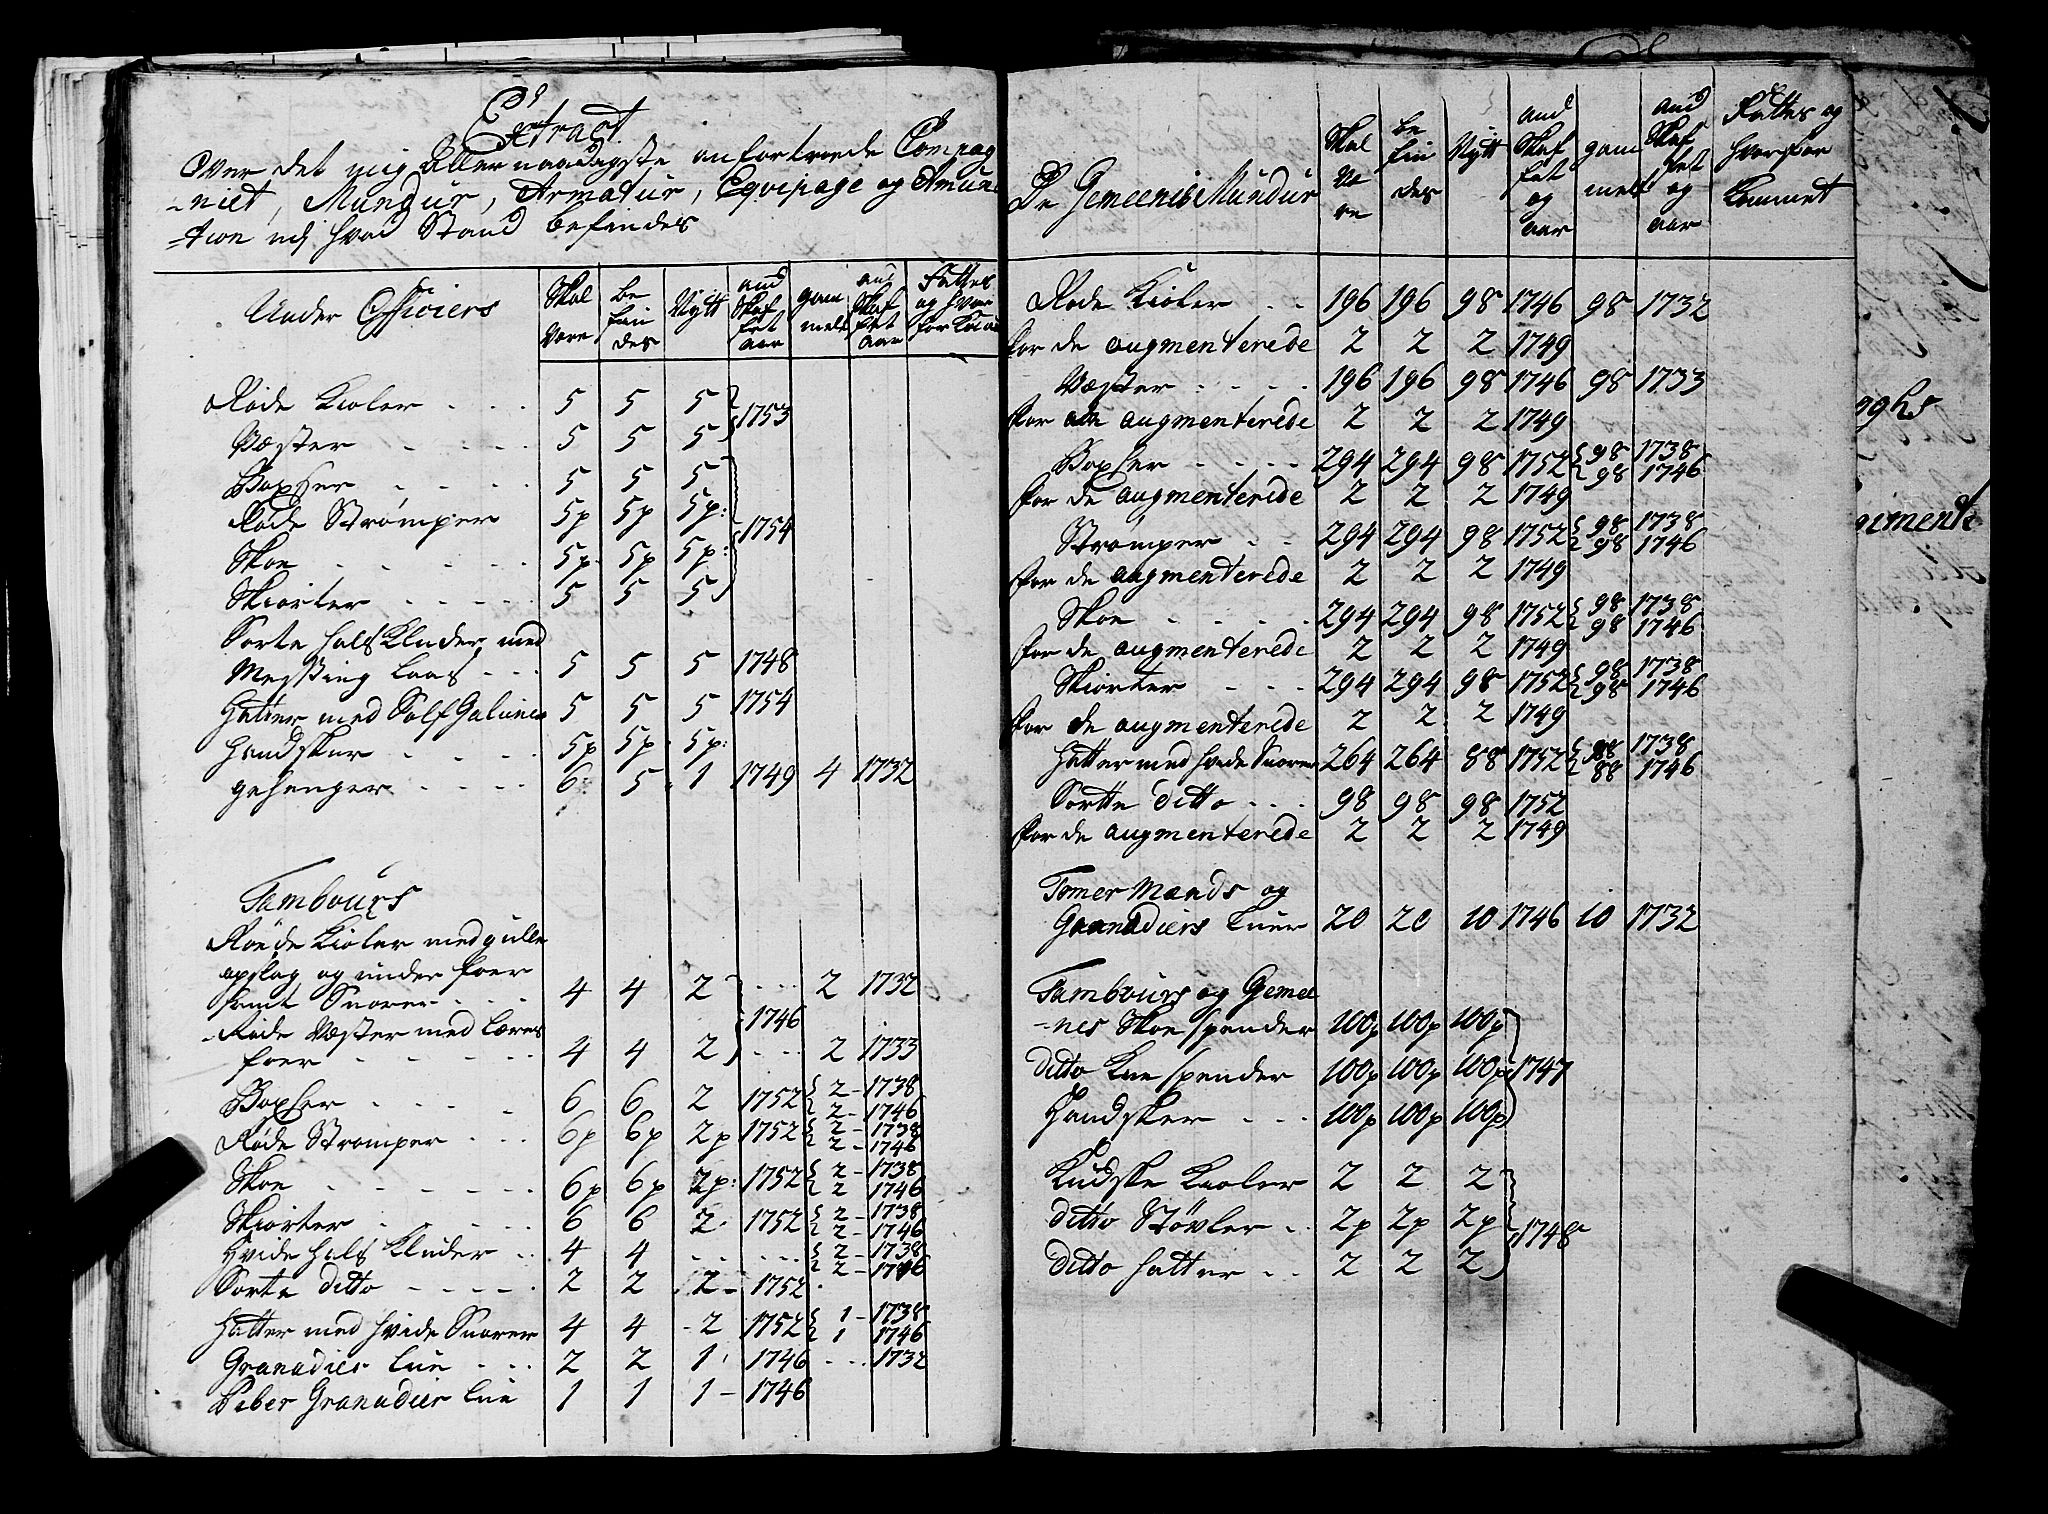 Extract
Over det mig Allernaadigste anfortroede Compag
-niet, Mundur, Armatur, Equipage og Amuni
-tion udj hvad Stand befindes
Under Officiers | Skal Være | be fin des | Nytt | and Skaf fet aar | gam melt | and Skaf fet aar | Fattes og hvor for
Røde Kioler - - - 5 5 5 } 1753
Væster - - - 5 5 5
Boxser - - - 5 5 5 }
Røde Strømper 5p 5p 5p: 1754
Skoe - - - - 5p. 5p 5p:
Skiorter - - - - 5 5 5
Sorte hals Kluder med
Messing Laas - - - 5 5 5 1748
Hatter med Sølf Galuner 5 5 5 1754
Handsker - - - 5p 5p 5p:
gehenger - - - - 6 5 1 1749 4 1732
Tambours
Røde Kioler med gulle
opslag og under foer
samt Snorer - - - 4 4 2 } - - - 2 1732
1746
Røde Væster med Læret
foer - - - - 4 4 2 - - - 2 1733
Boxser - - - - 6 6 2 1752 { 2 - 1738
2 - 1746
Røde Strømper - - - 6p 6p 2p 1752 { 2 - 1738
2 - 1746
Skoe - - - - - 6p 6p 2p: 1752 { 2 - 1738
2 1746
Skiorter - - - - 6 6 2 1752 { 2 - 1738
2 - 1746
Hvide hals Kluder - - 4 4 - - - - - { 2 - 1738
2 - 1746
Sorte ditto - - - - - 2 2 2 - 1752
Hatter med hvide Snorer 4 4 - 2 1752 { 1 - 1738
1 1746
Granadier Lue - - - 2 2 1 1746 - - - 1732
Piber Granadier Lue 1 1 1 - 1746
De Gemeenis Mundur | Skal Væ re | be fin des | Nytt | and Skaf fet og aar | gam melt | and Skaf fet og aar | Fattes og hvorfor kommet
Røde Kioler - - 196 196 98 1746 98 1732
for de augmenterede 2 2 2 1749
Væster - - - - 196 196 98 1746 98 1733
for de augmenterede 2 2 2 1749
Boxser - - - - 294 294 98 1752 { 98 1738
98 1746
for de augmenterede 2 2 2 1749
Strømper - - 294 294 98 1752 { 98 1738
98 1746
for de augmenterede 2 2 2 1749
Skoe - - - - 294 294 98 1752 { 98 1738
98 1746
for de augmenterede 2 2 2 1749
Skiorter - - - 294 294 98 1752 { 98 1738
98 1746
for de augmenterede 2 2 2 1749
Hatter med hvide Snorer 264 264 88 1752 { 88 1738
88 1746
Sortte ditto - - - 98 98 98 1752
for de augmenterede 2 2 2 1749
Tømer Mands og
Granadiers Luer 20 20 10 1746 10 1732
Tambours og Gemee
-nes Skoe spender 100p 100p 100p
ditto Knespender 100p 100p 100p } 1747
Handsker - - - 100p 100p 100p
Kudske Kioler 2 2 2
ditto Støvler - - 2p 2p 2p } 1748
ditto hatter - - 2 2 2